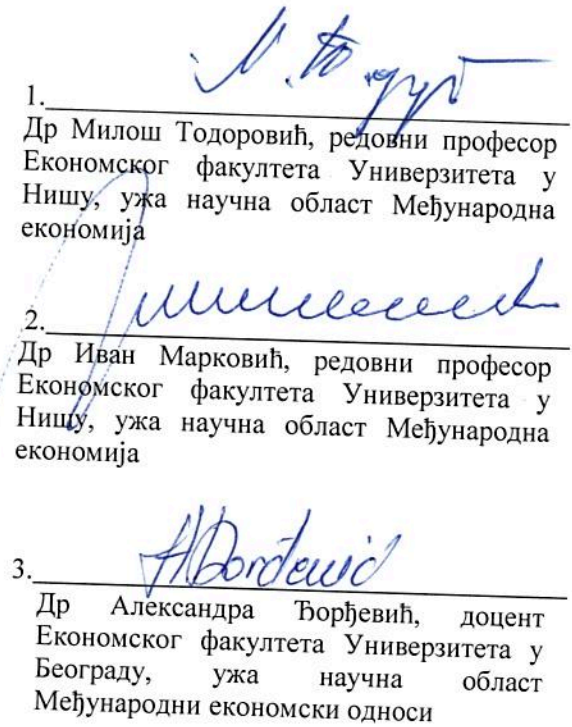 1.
Др Милош Тодоровић, редовни професор
Економског факултета Универзитета у
Нишу, ужа научна област Међународна
економија
2.
Др Иван Марковић, редовни професор
Економског факултета Универзитета у
Нишу, ужа научна област Међународна
економија
3. A Đorđević
Др Александра Ђорђевић, доцент
Економског факултета Универзитета у
Београду, ужа научна област
Међународни економски односи